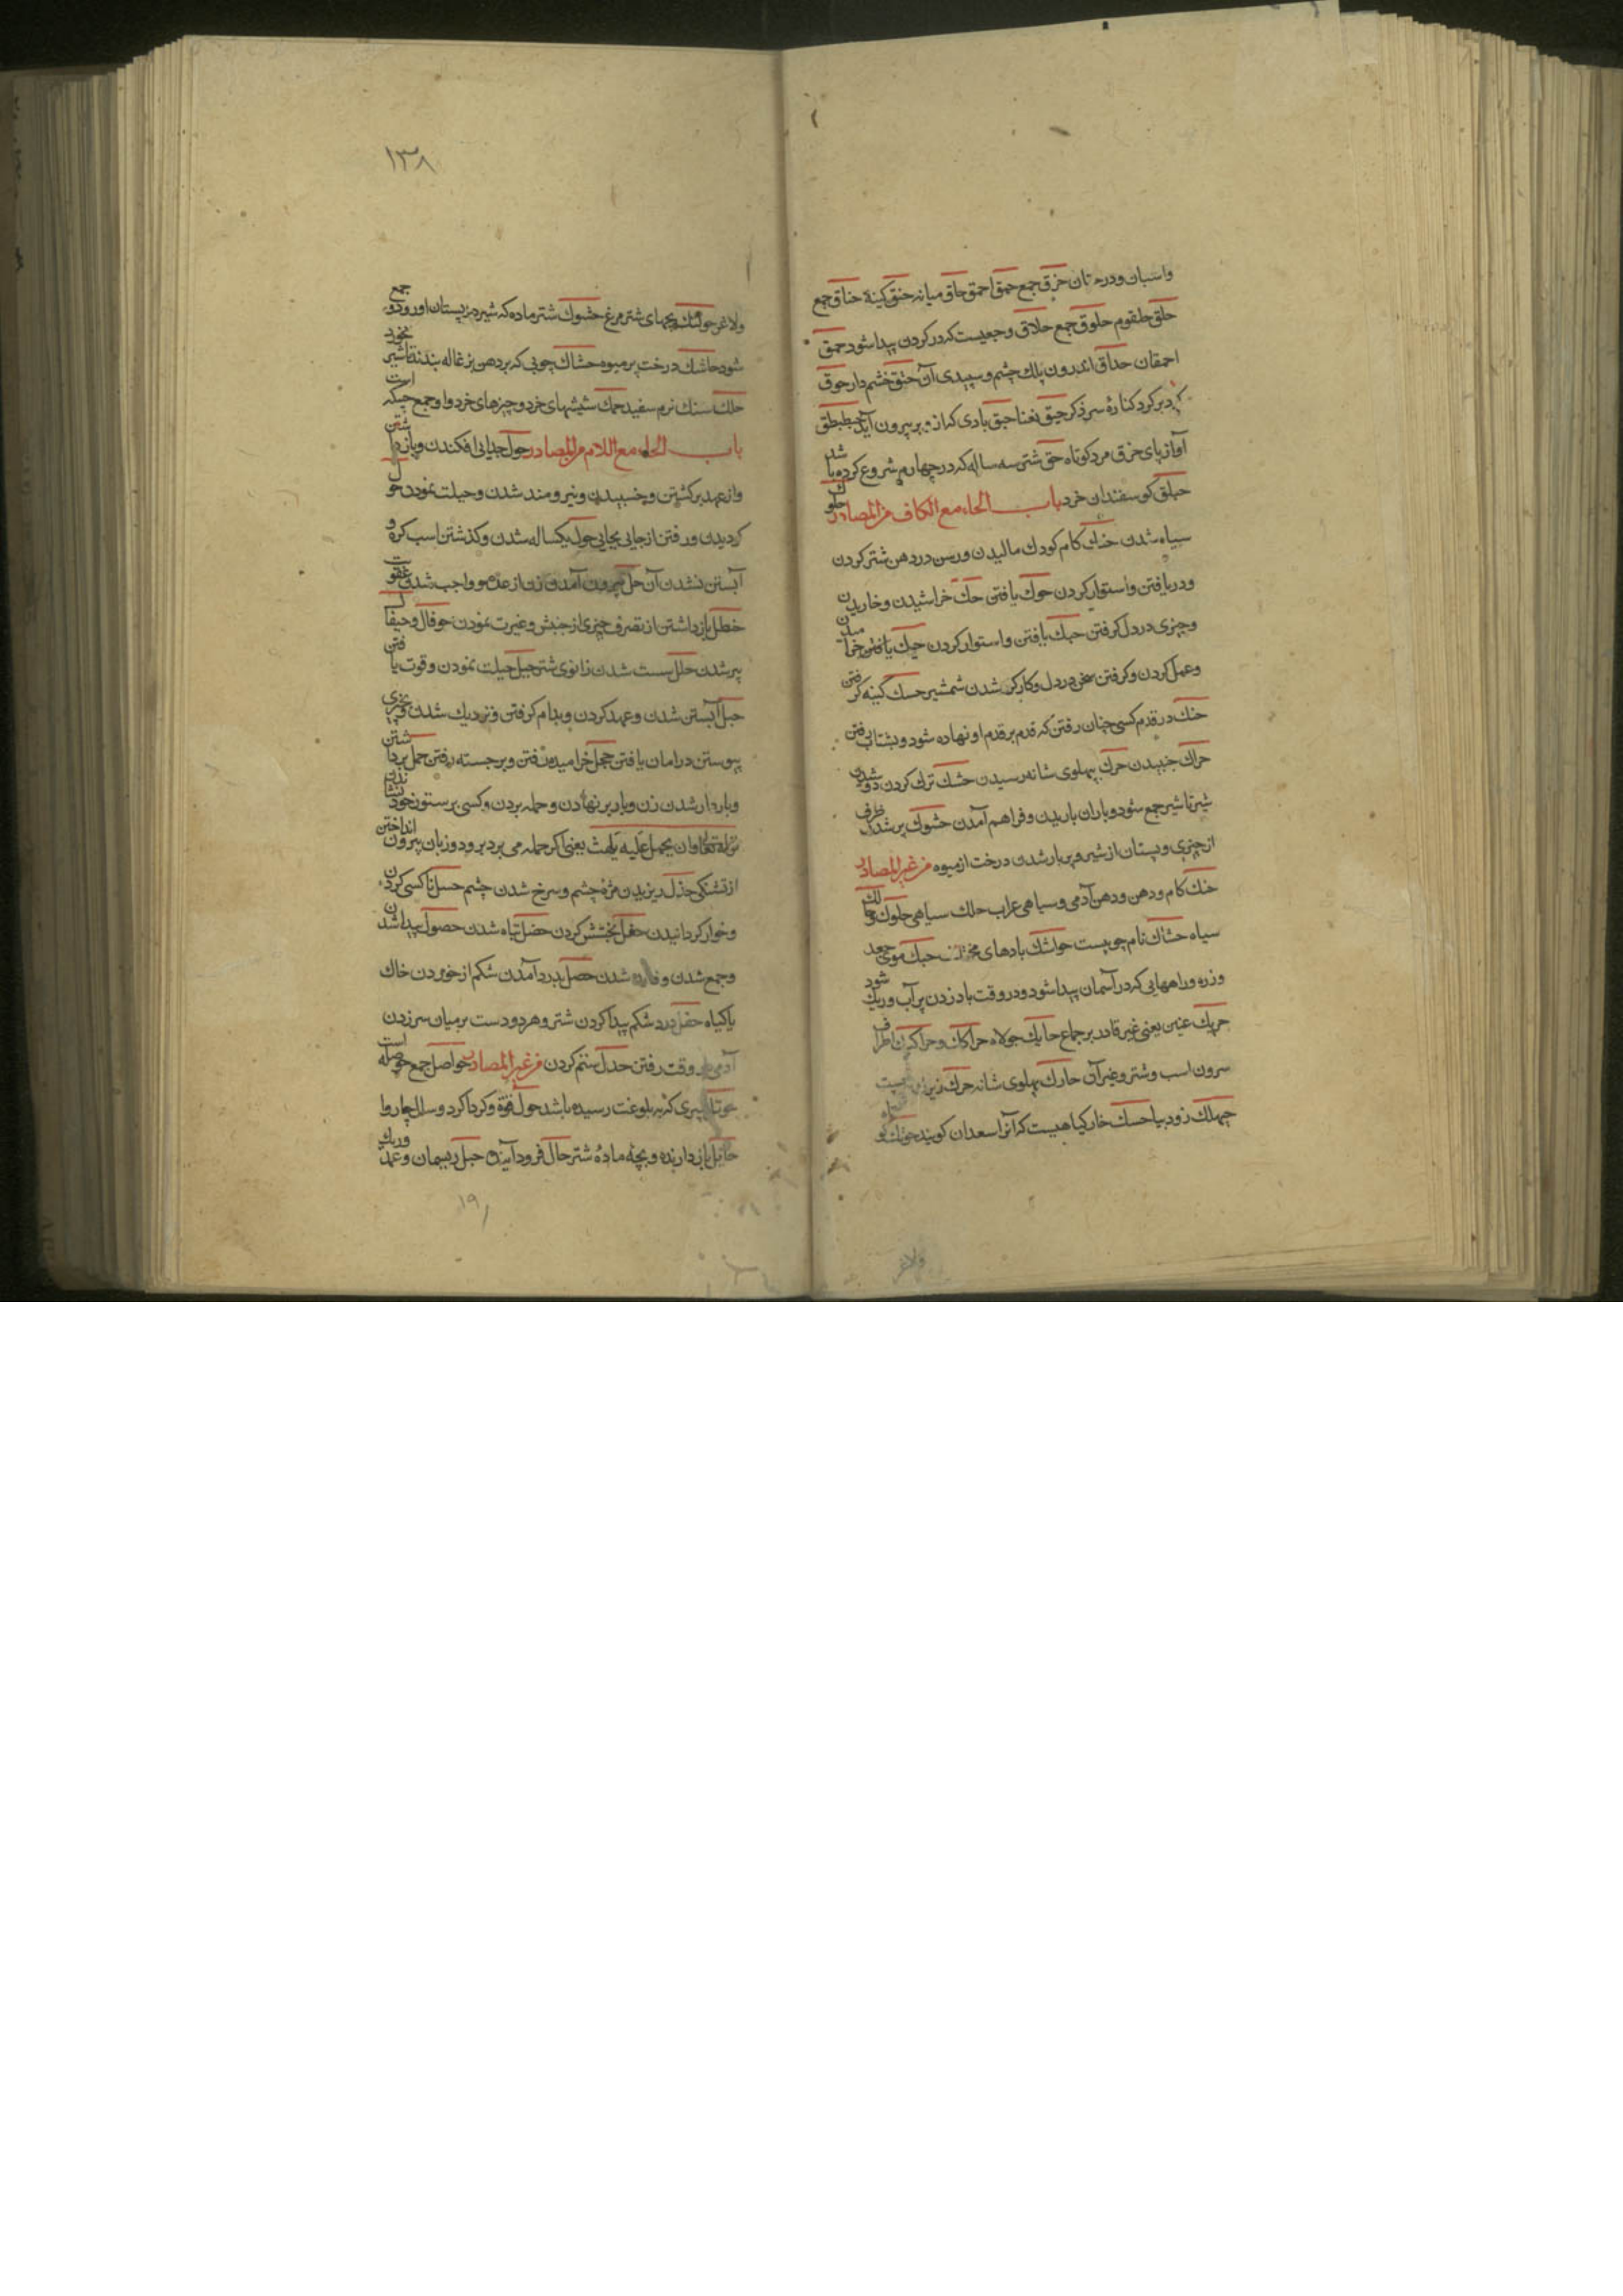 واسبان ودرختان حزق جمع حمق احمق حاق میانه حنق کینه حناق جمع
حلق حلقوم حلوق جمع حلاق وجعیست که در کردن پیدا شود حمق
احمقان حداق اندرون پلك چشم و سپیدی آن حنق خشم دار حوق
کرد بر کرد کنارهٔ سر ذکر حبق نعنا حبق بادی که از دبر بیرون آید حبطبطق
آواز پای حزق مرد کوتاه حق شتر سه ساله که در چهارم شروع کرده باشد
حبلق کوسفندان خرد باب الحاء مع الکاف من المصادر حلوك
سیاه شدن حنك کام کودك مالیدن ورسن در دهن شتر کردن
ودریافتن واستوار کردن حوك بافتن حك خراشیدن وخاریدن
وچیزی در دل کرفتن حبك بافتن واستوار کردن حیك بافتن وخرامیدن
وعمل کردن وکرفتن سخن در دل وکارکر شدن شمشیر حسك کینه کرفتن
حتك در قدم کسی چنان رفتن که قدم بر قدم او نهاده شود وبشتاب رفتن
حراك جنبیدن حرك بپهلوی شانه رسیدن حشك ترك کردن دوشیدن
شیر تا شیر جمع شود وباران باریدن وفراهم آمدن حشوك پر شدن ظرف
از چیزی وپستان از شیر وپر بار شدن درخت از میوه من غیر المصادر
حنك کام ودهن ودهن آدمی وسیاهی غراب حلك سیاهی حلوك وحالك
سیاه حشاك نام جوییست حواشك بادهای مختلف حبك موی جعد
وزره وراههایی که در آسمان پیدا شود ودر وقت باد زدن بر آب وریك شود
حریك عنین یعنی غیر قادر بر جماع حایك جولاه حراکك وحراکیك اطراف
سرون اسب وشتر وغیر آن حارك پهلوی شانه حرك زیرك
چهلك زود بیا حسك خار کیاهیست که آنرا سعدان کویند حوتك کوتاه
ولاغر
۱۳۸
ولاغر حواتك بچهای شتر مرغ حشوك شتر ماده که شیر در پستان او زود جمع
شود حاشك درخت پر میوه حشاك چوبی که بر دهن بزغاله بندند تا شیر نخورد
حلك سنك نرم سفید حمك شپشهای خرد وچیزهای خرد واو جمع حمکه است
باب الحاء مع اللام من المصادر حول جدایی افکندن وبازداشتن
واز عهد برکشتن وچسبیدن ونیرومند شدن وحیلت نمودن حول
کردیدن ورفتن از جایی بجایی حول یکساله شدن وکذشتن اسب کره و
آبستن نشدن آن حل بیرون آمدن زن از عده وواجب شدن عقوبت
حظل بازداشتن از تصرف چیزی از جنبش وغیرت نمودن حوقال وحیقال
پیر شدن حلل سست شدن زانوی شتر حیل حیلت نمودن وقوت یافتن
حبل آبستن شدن وعهد کردن وبدام کرفتن ونزدیك شدن وبچیزی
پیوستن در امان یافتن حجل خرامیدن رفتن وبرجسته رفتن حمل برداشتن
وباردار شدن زن وبار بر نهادن وحمله بردن وکسی بر ستور خود نشاندن
قوله تعالی وان یحمل علیه یلهث یعنی اکر حمله می برد بر ود وزبان بیرون انداختن
از تشنکی حذل ریزیدن مژهٔ چشم وسرخ شدن چشم حسل ناکسی کردن
وخوار کردانیدن حفل بخشش کردن حضل تباه شدن حصول پیدا شدن
وجمع شدن وفایده شدن حصل بدرد آمدن شکم از خوردن خاك
یا کیاه حقل درد شکم پیدا کردن شتر وهر دو دست بر میان سر زدن
آدمی در وقت رفتن حدل ستم کردن من غیر المصادر حواصل جمع حوصله است
پیری که نه بلوغت رسیده باشد حول قوة وکرداکرد وسال چاروا
حایل بازدارنده وبچهٔ مادهٔ شتر حال فرود آینده حبل ریسمان وعهد وریك
۱۹